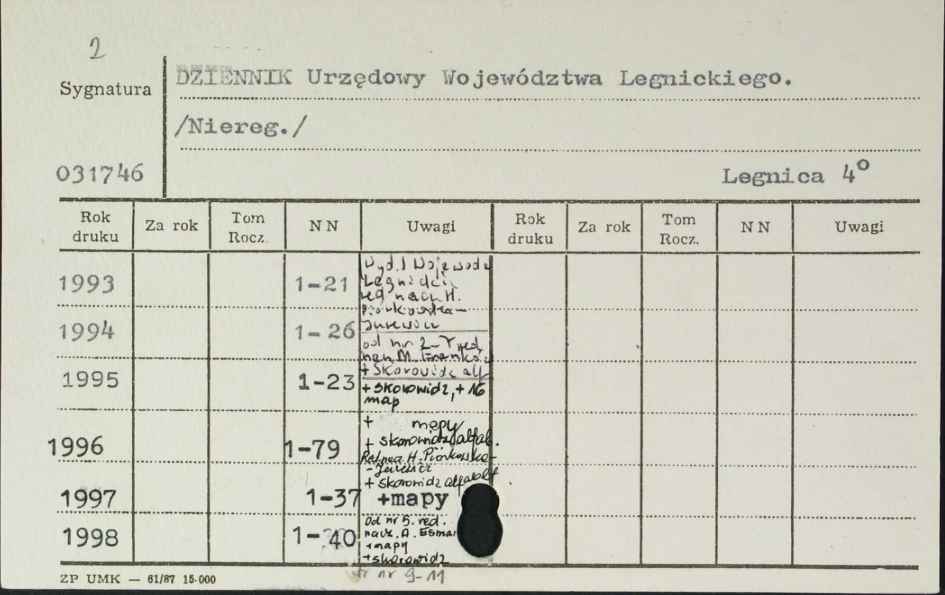 2
Sygnatura
DZIENNIK Urzędowy Województwa Legnickiego.
/Niereg./
031746
Legnica 4°
Rok druku Za rok Tom Rocz. N N Uwagi Rok druku Za rok Tom Rocz. N N Uwagi
1993 1-21
Wyd.
red nacz H.
Piórkowska-
1994 1-26
od nr 2-
+ Skorowidz alf
1995 1-23 + skorowidz, + 16
map
+ mapy
1996 1-79 + skorowidz alfab.
H. Piórkowska-
+ skorowidz
1997 1-37 +mapy
1998 1-40
Od nr 5. red.
nacz. A.
+mapy
+skorowidz
nr 9-11
ZP UMK — 61/87 15-000